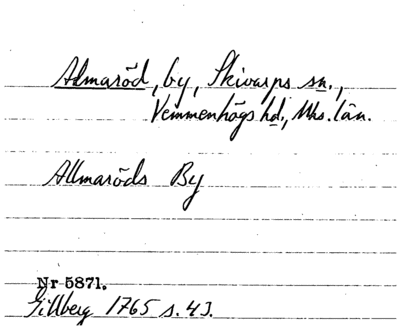 Almaröd, by, Skivarps sn.,
Vemmenhögs hd., Mhs. län.
Allmaröds By
Nr 5871.
Gillberg 1765 s. 43.